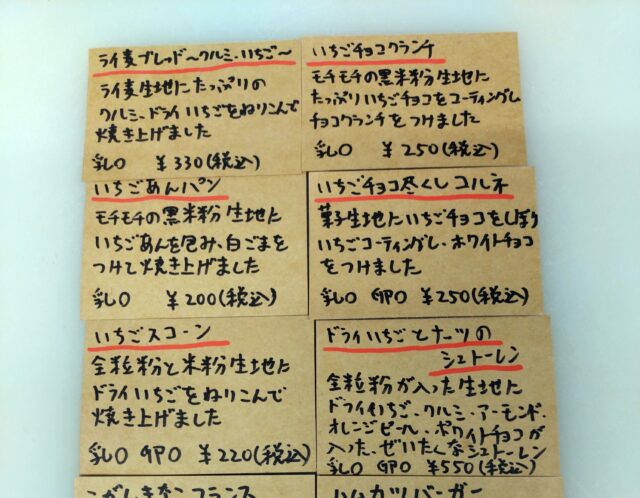 ライ麦ブレッド〜クルミ・いちご〜
ライ麦生地にたっぷりの
クルミ、ドライいちごをねりこんで
焼き上げました
乳○ ¥330(税込)
いちごチョコクランチ
モチモチの黒米粉生地に
たっぷりいちごチョコをコーティングし
チョコクランチをつけました
乳○ ¥250(税込)
いちごあんパン
モチモチの黒米粉生地に
いちごあんを包み、白ごまを
つけて焼き上げました
乳○ ¥200(税込)
いちごチョコ尽くしコルネ
菓子生地にいちごチョコをしぼり
いちごコーティングし、ホワイトチョコ
をつけました
乳○ 卵○ ¥250(税込)
いちごスコーン
全粒粉と米粉生地に
ドライいちごをねりこんで
焼き上げました
乳○ 卵○ ¥220(税込)
ドライいちごとナッツの
シュトーレン
全粒粉が入った生地に
ドライいちご、クルミ・アーモンド、
オレンジピール、ホワイトチョコが
入った、ぜいたくなシュトーレン
乳○ 卵○ ¥550(税込)
こがしきなこフランス
ハムカツバーガー